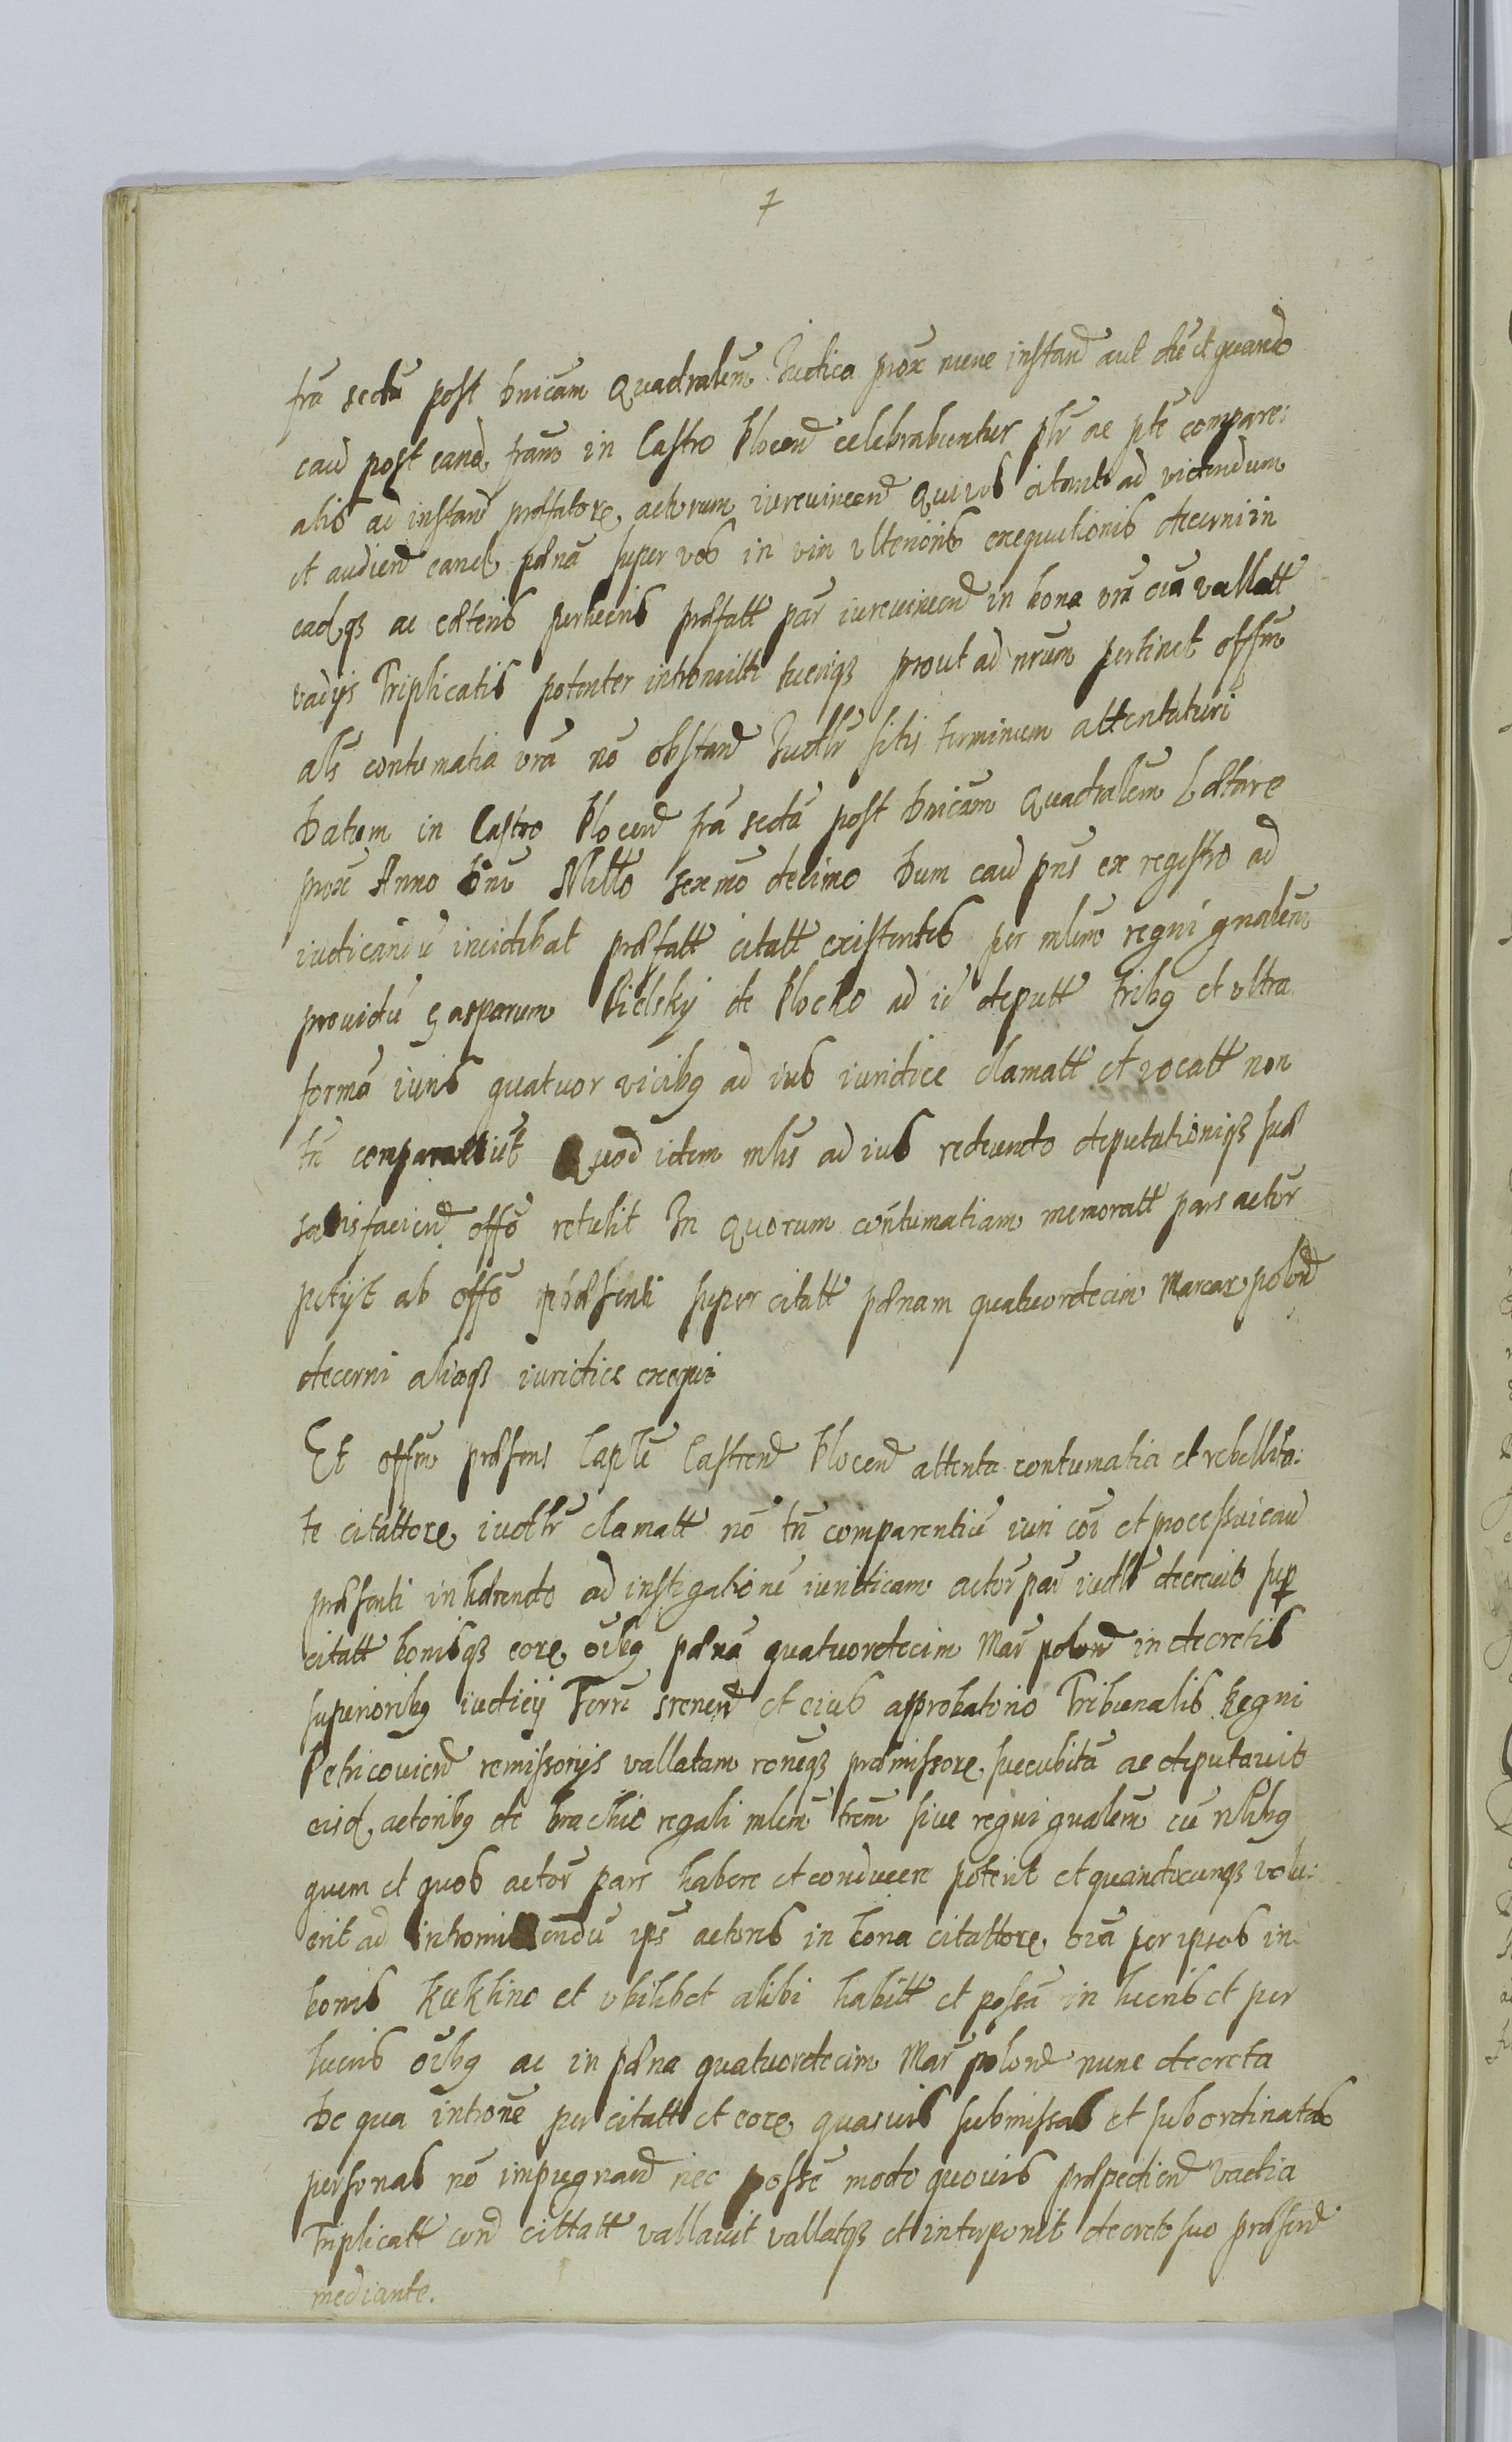 7
fra secda post Dnicam Quadralem Iudica prox nunc instand aut die et quando
caus post eand, fram in Castro Plocen celebrabuntur plr ac pte compare:
atis ad instand præfatore, actorum iurevincend Qui vos citant ad videndum
et audiend eand, pœna super vos in vim ulterioris exequutionis decerni in
eadqʒ ac cæteris perlucris præfatt par iurevincend in bona vra oia vallatt
vadijs Triplicatis potenter intromitti tueriqʒ prout ad nrum pertinet offm
als contumatia vra no obstand Iudlr sitis terminum attentaturi
Datum in Castro Plocen fra secda post Dnicam Quadralem Lætare
prox Anno Dni Millo sexmo decimo Dum caus pns ex registro ad
iudicandu incidebat præfatt citatt existentes per mlem regni gnalem
providu Gasparum Bielsky de Plocko ad id deputt tribʒ et ultra
forma iuris quatuor vicibʒ ad ius iuridice clamatt et vocatt non
tn comparuerut Quod idem mlis ad ius redeundo deputationiqʒ suæ
satisfaciend, offo retulit In quorum contumatiam memoratt pars actor
petijt ab offo præsenti super citatt pœnam quatuordecim Marcar polon
decerni aliaqʒ iuridice exequi
Et offm præsens Caple Castren Plocen attenta contumatia et rebellita:
te citattore, iudlr clamatt no tn comparentiu iuri coi et processui caus
præsenti inhærendo ad instigatione iuridicam actor par iudlr decrevit sup
citatt bonisqʒ eore, oibʒ pœna quatuordecim Mar polon in decretis
superioribʒ iudicij Terre srenen et eius approbatorio Tribunalis Regni
Petricovien remissorijs vallatam roneqʒ præmissore, succubita ac deputavit
eisd, actoribʒ de brachio regali mlem trem sive regni gnalem cu nlibʒ
quem et quos actor pars habere et conducere poterit et quandocunqʒ volu:
erit ad intromittendu ips actoris in bona citattore, oia per ipsos in
bonis Kuklino et ubilibet alibi habitt et possa in lucris et per
lucris oibʒ ac in pœna quatuordecim Mar polon nunc decreta
De qua introne per citatt et eore, quasvis submissas et subordinatas
personas no impugnand nec posse modo quovis præpediend Vadia
Triplicatt cond cittatt vallavit vallatqʒ et interponit decreto suo præsend
mediante.